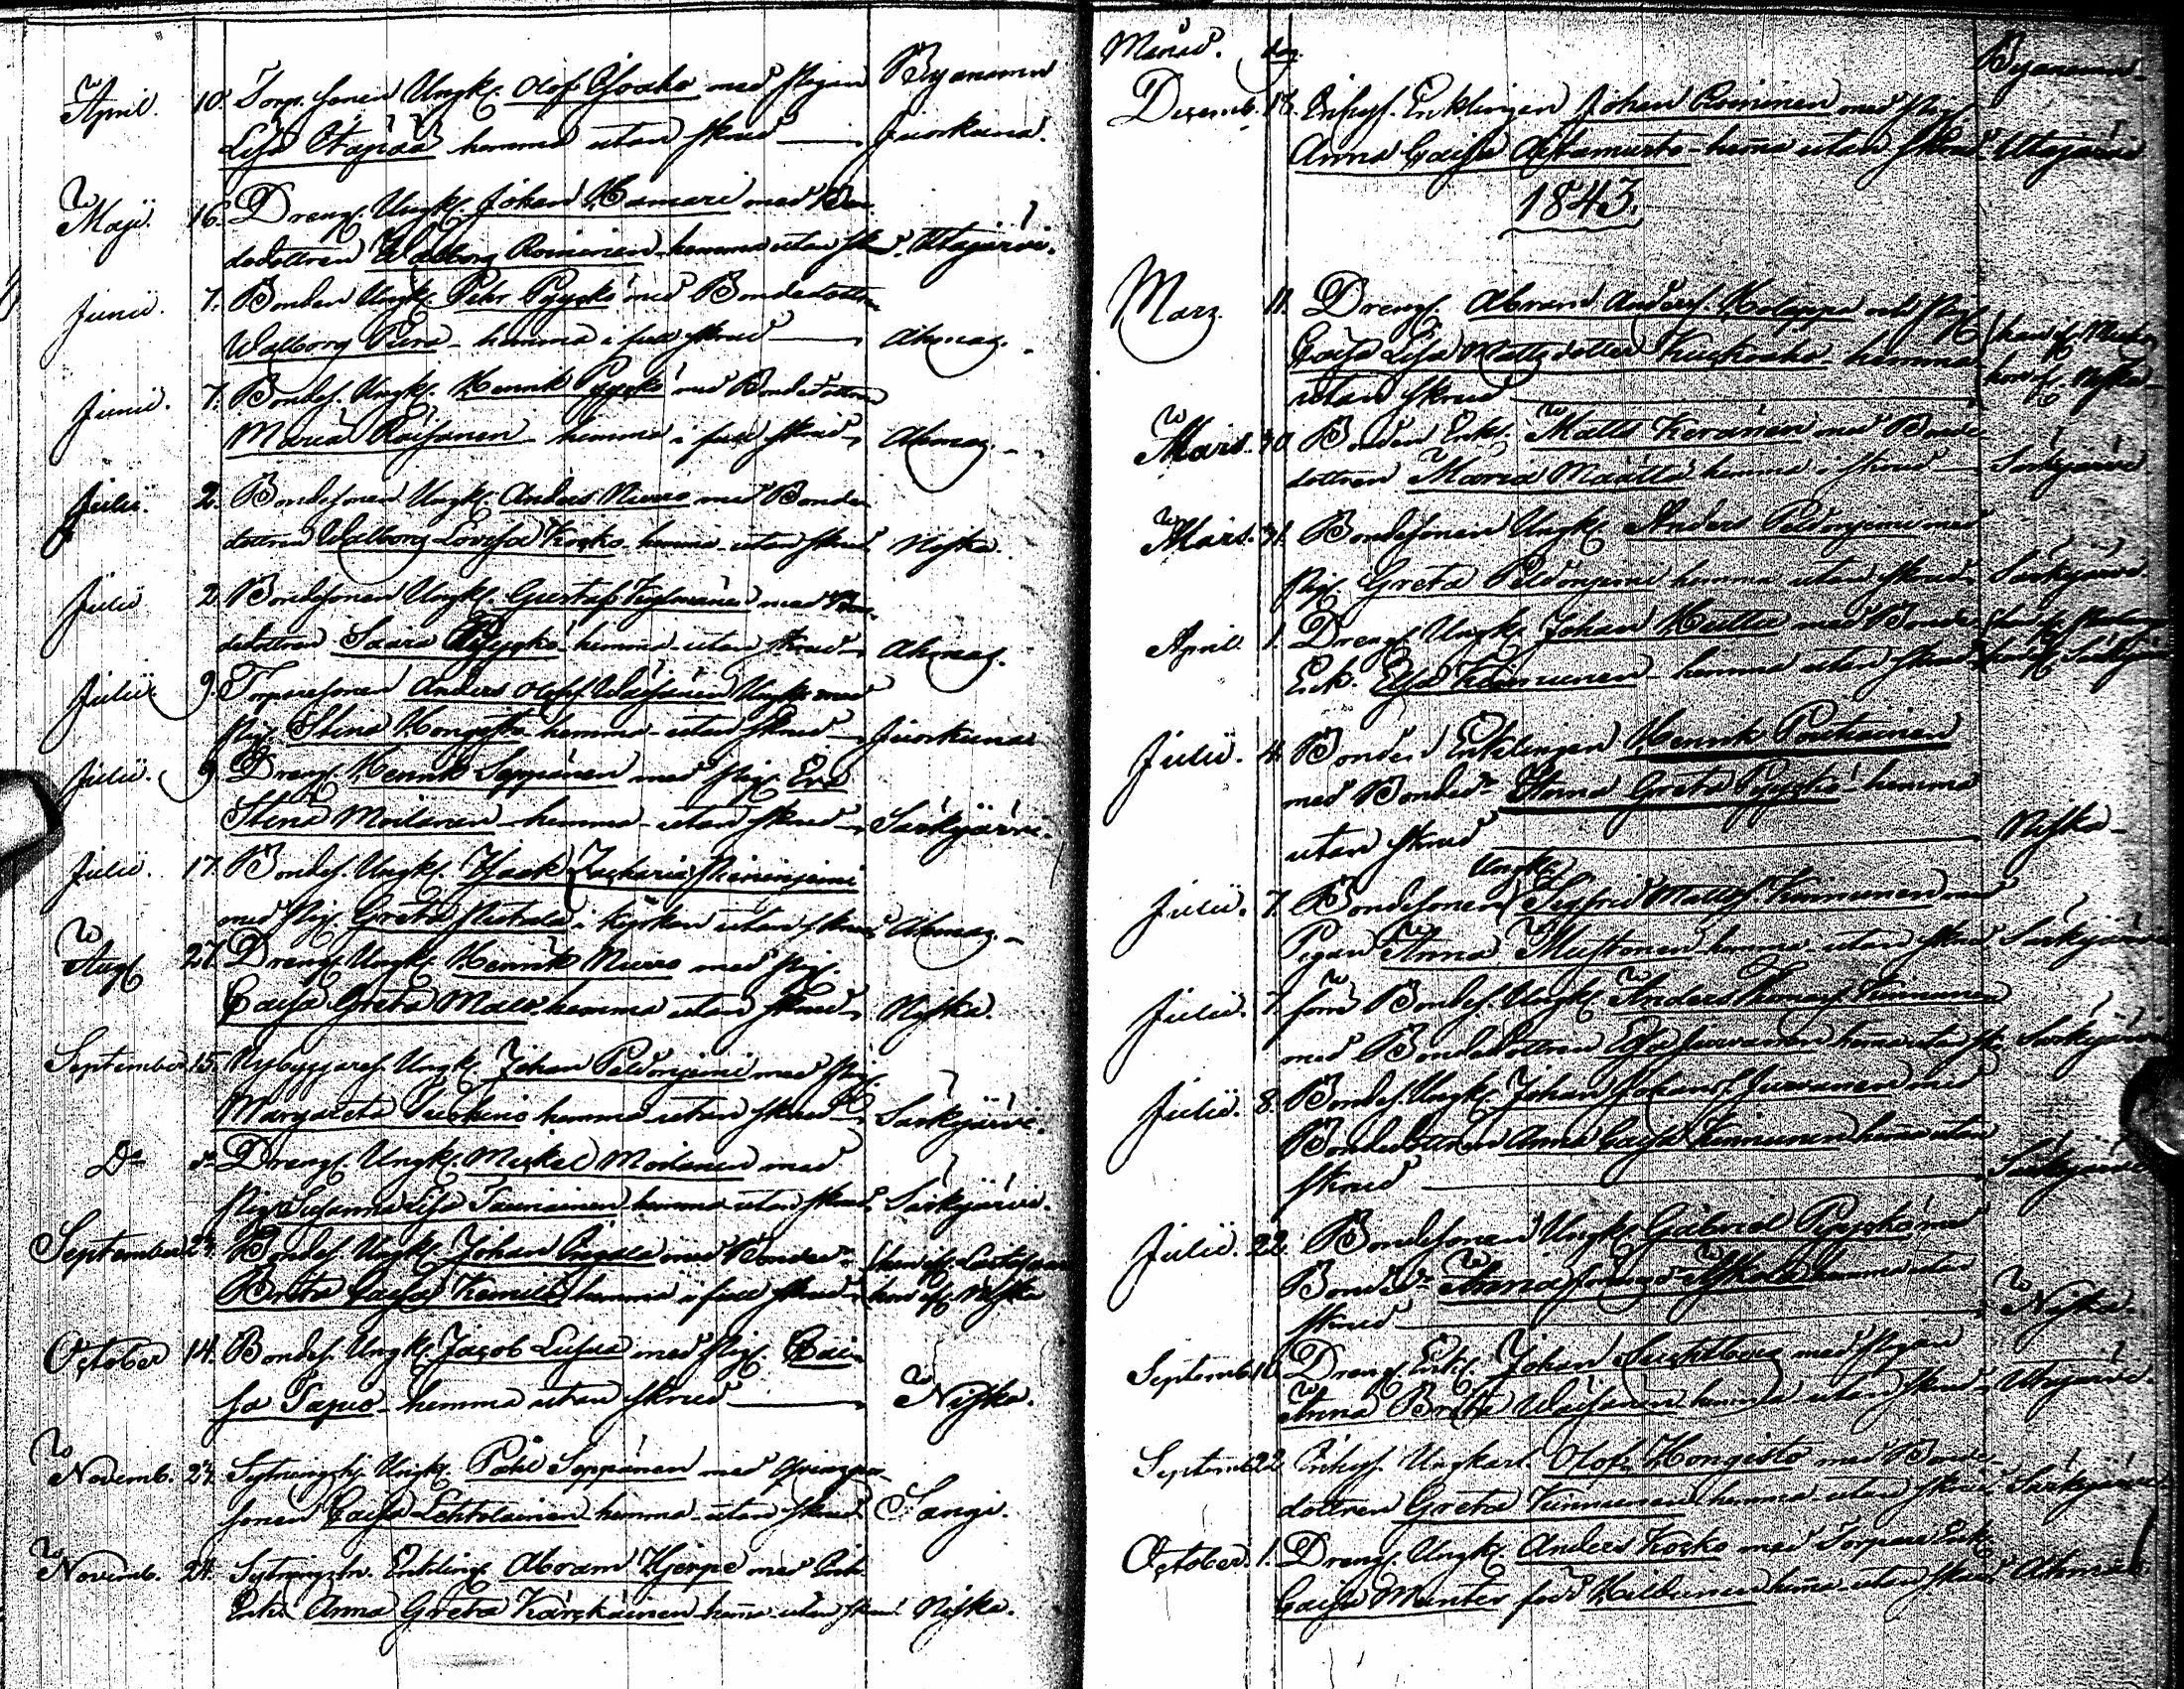 Byanamn
April. 10. Torp. sonen Ungk. Olof Ahoaho med pigan
Lisa hemma utan skrud Juorkuna.
Maji. 16. Dreng. Ungk. Johan Hamari med Bon-
dedottren Walborg Roininen hemma utan skrud. Utajärvi.
Junii. 7. Bonden Ungk. Pehr Pyyckö med Bondedottren
Walborg Piira - hemma i full skrud Ahmas.
Junii. 7. Bondes. Ungk. Henrik Pyyckö med Bondedottren
Maria Räisänen - hemma i full skrud Ahmas.
Julii. 2. Bondesonen Ungk. Anders Nierro med Bonde
dottren Walborg Lovisa Kocko hemma - utan skrud Niska.
Julii 2. Bondesonen Ungk. Gustaf med Bon-
dedottren Saara Pyyckö hemma - utan skrud Ahmas.
Julii 9. Torparesonen Anders Olofss. Wäisänen Ungk. med
pig. Stina Hongisto hemma - utan skrud Juorkuna
Julii. 9. Dreng. Henrik Seppänen med pig. Eva
Stina Moilanen - hemma - utan skrud Särkijärvi.
Julii. 17. Bondes. Ungk. Isaak Zacharias Nieminiemi
med pig. Greta i kyrkan utan skrud Ahmas.
Aug. 27. Dreng. Ungk. Henrik Nierro med pig.
Caisa Greta Malo hemma utan skrud Niska.
September 15. Nybyggares. Ungk. Johan Peldoniemi med pig.
Margareta hemma utan skrud Särkijärvi.
Do do Dreng. Ungk. Mickel Moilanen med
pig. Susanna Lisa Tauriainen hemma - utan skrud Särkijärvi.
September Bondes. Ungk. Johan med Bonded. han ifr.
Brita Caisa hemma i full skrud hon ifr. Niska
October 14. Bondes. Ungk. Jacob med pig. Cai-
sa Tapio - hemma utan skrud Niska.
Novemb. Ungk. Påhl Seppänen med
Caisa Lehtolainen hemma - utan skrud Sangi.
Novemb. 24. Enklingen Abram Hjerpe med
Enk. Anna Greta Kärckäinen hema utan skrud Niska.
Månad. dag. Byanamn
Decemb. 18. Inhys. Enklingen Johan Roininen med pig.
Anna Caisa - hema utan skrud Utajärvi
1843.
Marz. 11. Dreng. Abram Anderss. Holappa med pig.
Caisa Lisa Mattsdotter hemma
utan skrud hon ifr. Niska
Mars. 30 Bonden Enkl. Matts Keränen med Bonde-
dottren Maria Määttä hemma i skrud Särkijärvi
Mars. 31. Bondesonen Ungk. Anders Peldoniemi med
pig. Greta Peldoniemi hemma utan skrud Särkijärvi
April. 1. Dreng. Ungk. Johan Heutta med Bonde
Enk. Elsa Kinnunen hemma utan skrud hon ifr. Särkijärvi
Julii. 4. Bonden Enklingen Henrik Poutiainen
med Bonded. Anna Greta Pyyckö - hemma
utan skrud Niska
Ungk.
Julii. 7. Bondesonen Sigfrid Mattss. Kinnunen med
Pigan Anna Mustonen hemma utan skrud Särkijärvi
Julii. 7. förre Bondes. Ungk. Anders Thomass. Kinnunen
med Bondedottren Elsa Juvanen hema utan sk. Särkijärvi
Julii. 8. Bondes. Ungk. Johan Johanss. Juvanen med
Bondedottren Anna Caisa Kinnunen hema utan
skrud Särkijärvi
Julii. 22. Bondesonen Ungk. Gabriel Pyyckö med
Bonded. Anna hemma utan
skrud Niska.
Septemb. Dreng Enkl. Johan med pigan
Anna Brita Wäisänen hemma - utan skrud Utajärvi.
Septemb. 22 Inhys. Ungkarl. Olof Hongisto med Bonde-
dottren Greta Kinnunen hemma - utan skrud Särkijärvi
October. 1. Dreng. Ungk. Anders Kocko med Torpare Enk.
Caisa Munter född hema utan skrud Ahmas.